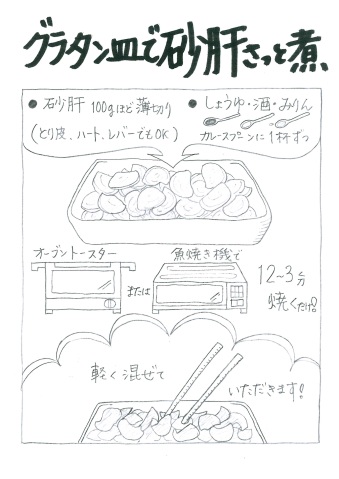 グラタン皿で砂肝さっと煮
● 砂肝 100gほど薄切り
(とり皮、ハート、レバーでもOK)
● しょうゆ・酒・みりん
カレースプーンに1杯ずつ
オーブントースター
または
魚焼き機で
12~3分
焼くだけ!
軽く混ぜて
いただきます!